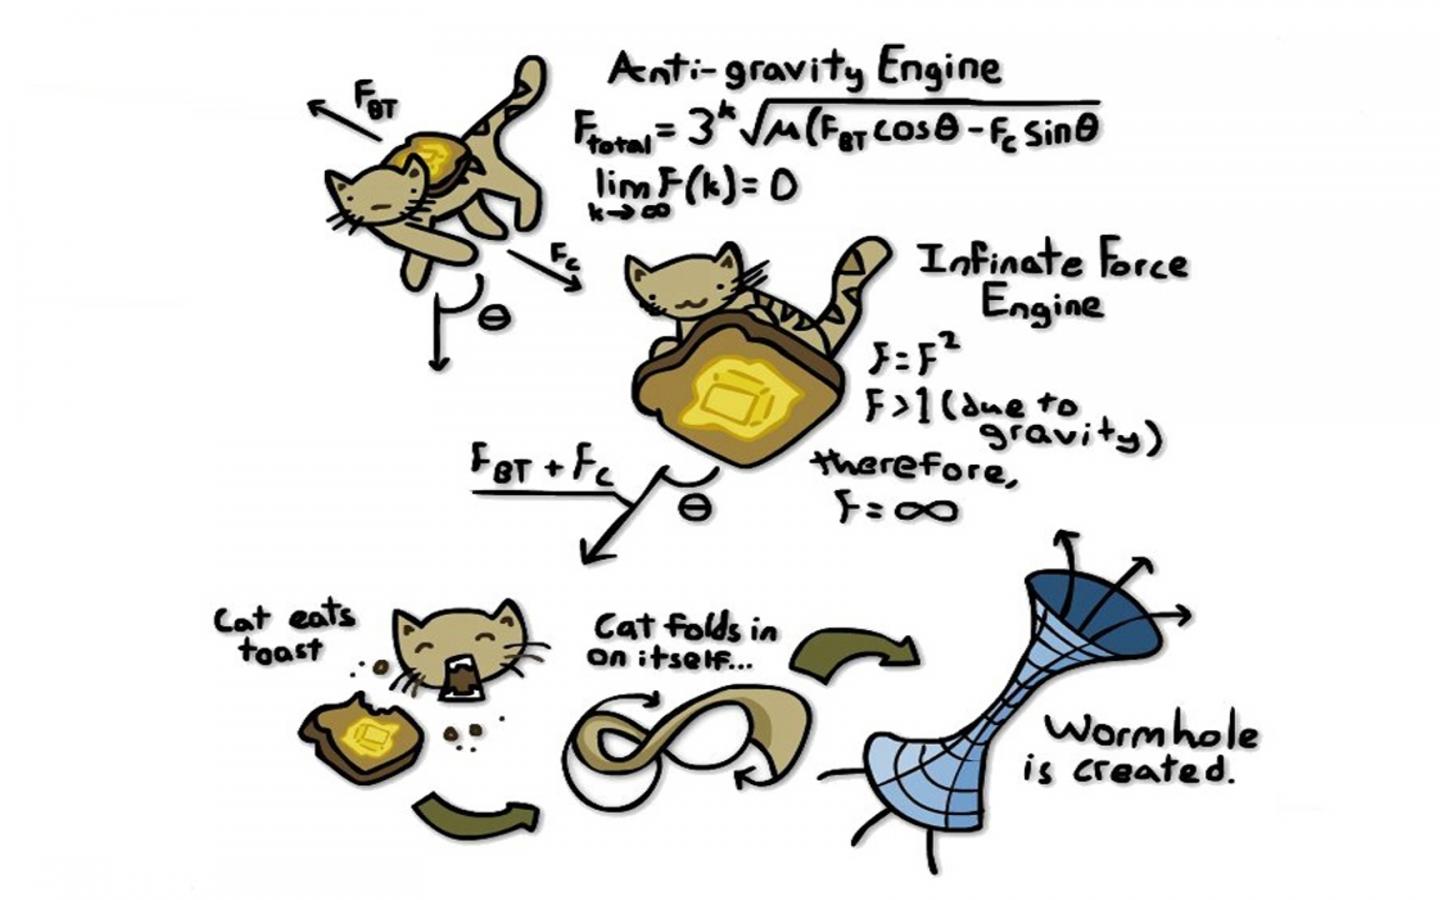 Anti-gravity Engine
F_BT
F_total = 3^k √μ(F_BT cosθ - F_c sinθ
lim F(k) = 0
k→∞
F_c
θ
Infinate Force
Engine
F = F^2
F > 1 (due to
gravity)
therefore,
F = ∞
F_BT + F_c
θ
Cat eats
toast
Cat folds in
on itself...
Wormhole
is created.